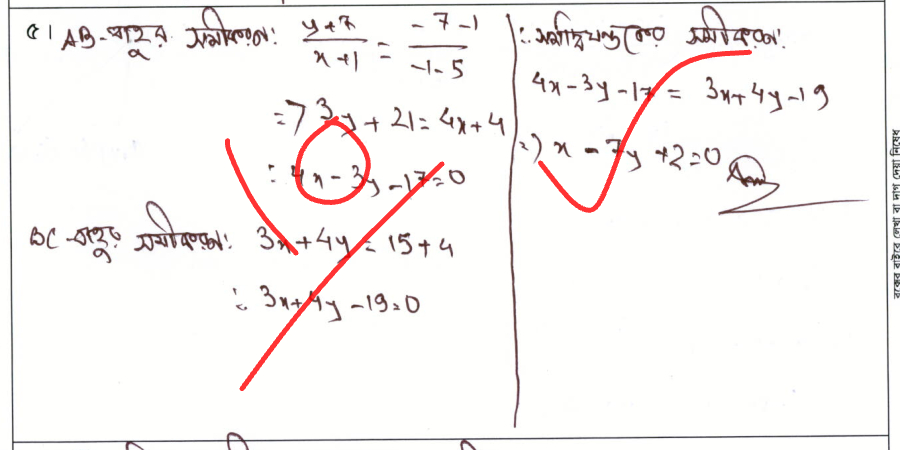 ৫। AB-বাহুর সমীকরণ: (y+7)/(x+1) = (-7-1)/(-1-5)
=> 3y + 21 = 4x + 4
∴ 4x - 3y - 17 = 0
BC-বাহুর সমীকরণ: 3x + 4y = 15 + 4
∴ 3x + 4y - 19 = 0
∴ সমদ্বিখন্ডকের সমীকরণ:
4x - 3y - 17 = 3x + 4y - 19
=> x - 7y + 2 = 0 Ans
বক্সের বাইরে লেখা বা দাগ দেয়া নিষেধ